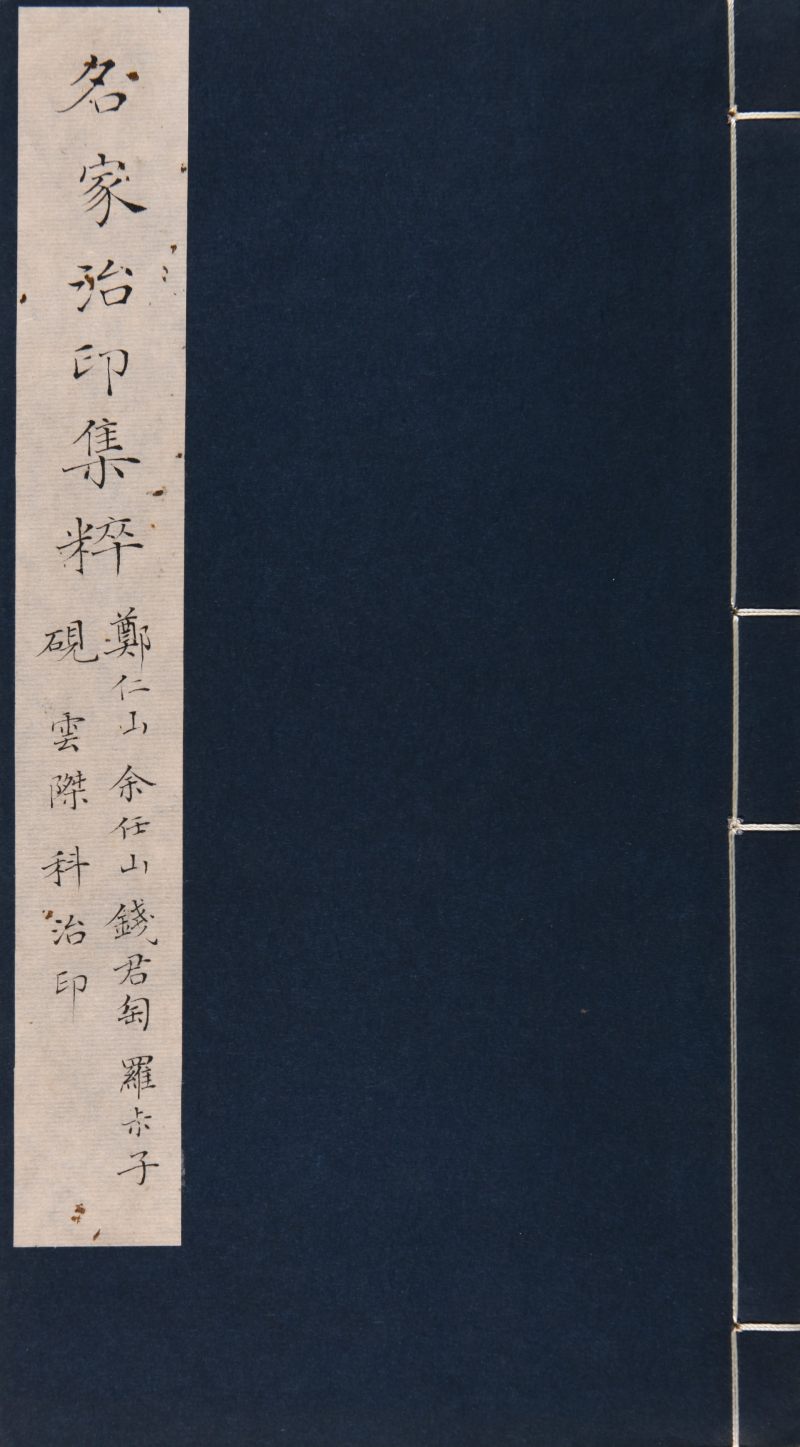 名家治印集粹
鄭仁山 余任山 錢君匋 羅尗子
硯雲 傑科治印